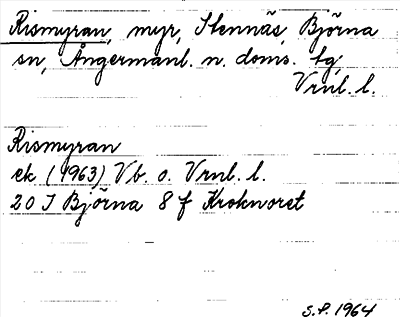 Rismyran, myr, Stennäs, Björna
sn, Ångermanl. n. doms. tg,
Vrnl. l.
Rismyran
ek (1963) Vb. o. Vrnl. l.
20 I Björna 8 f Kroknoret
S.P. 1964